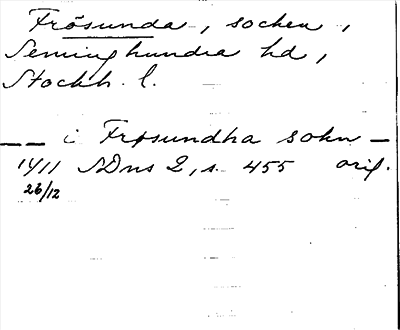 Frösunda, socken,
Seminghundra hd,
Stockh. l.
— — i Frøsundha sokn —
1411 SDns 2, s. 455 orig.
26/12